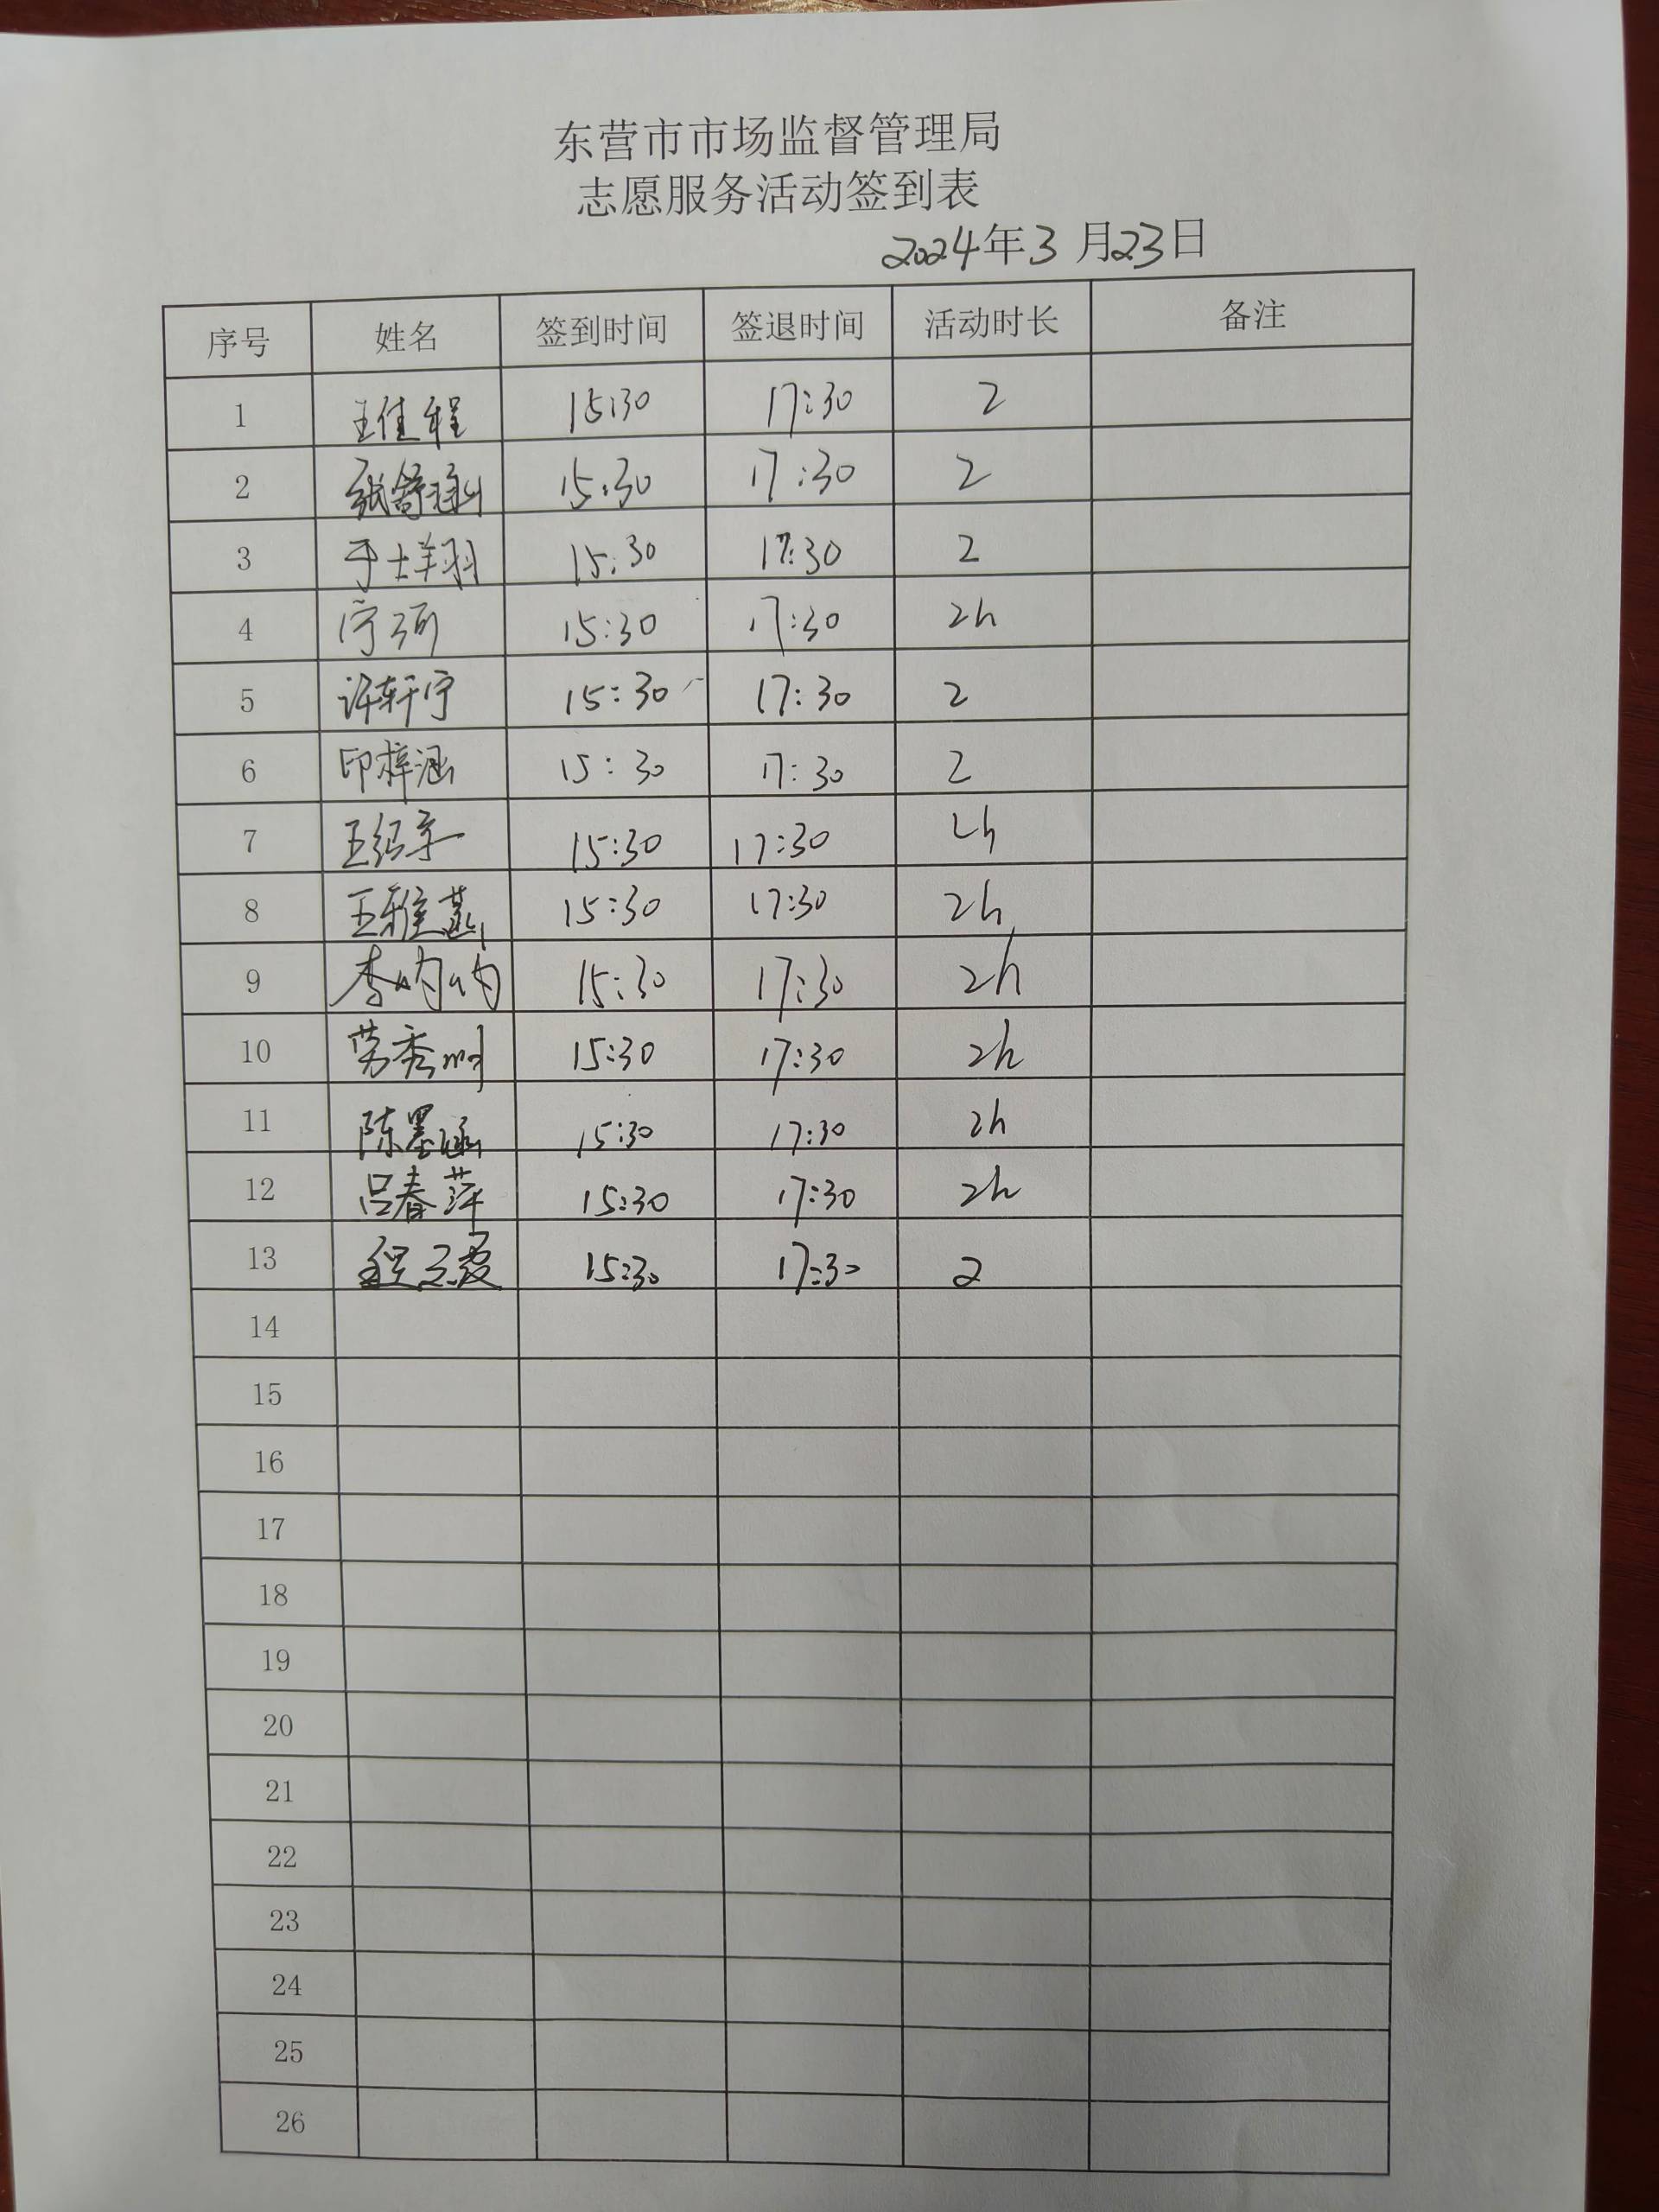 东营市市场监督管理局
志愿服务活动签到表
2024年3月23日
序号 姓名 签到时间 签退时间 活动时长 备注
1 王佳程 15:30 17:30 2
2 张舒涵 15:30 17:30 2
3 于士翔 15:30 17:30 2
4 宁 15:30 17:30 2h
5 许轩宁 15:30 17:30 2
6 印梓涵 15:30 17:30 2
7 王绍宇 15:30 17:30 2h
8 王雅菡 15:30 17:30 2h
9 李 15:30 17:30 2h
10 劳秀 15:30 17:30 2h
11 陈墨涵 15:30 17:30 2h
12 吕春萍 15:30 17:30 2h
13 程 15:30 17:30 2
14
15
16
17
18
19
20
21
22
23
24
25
26